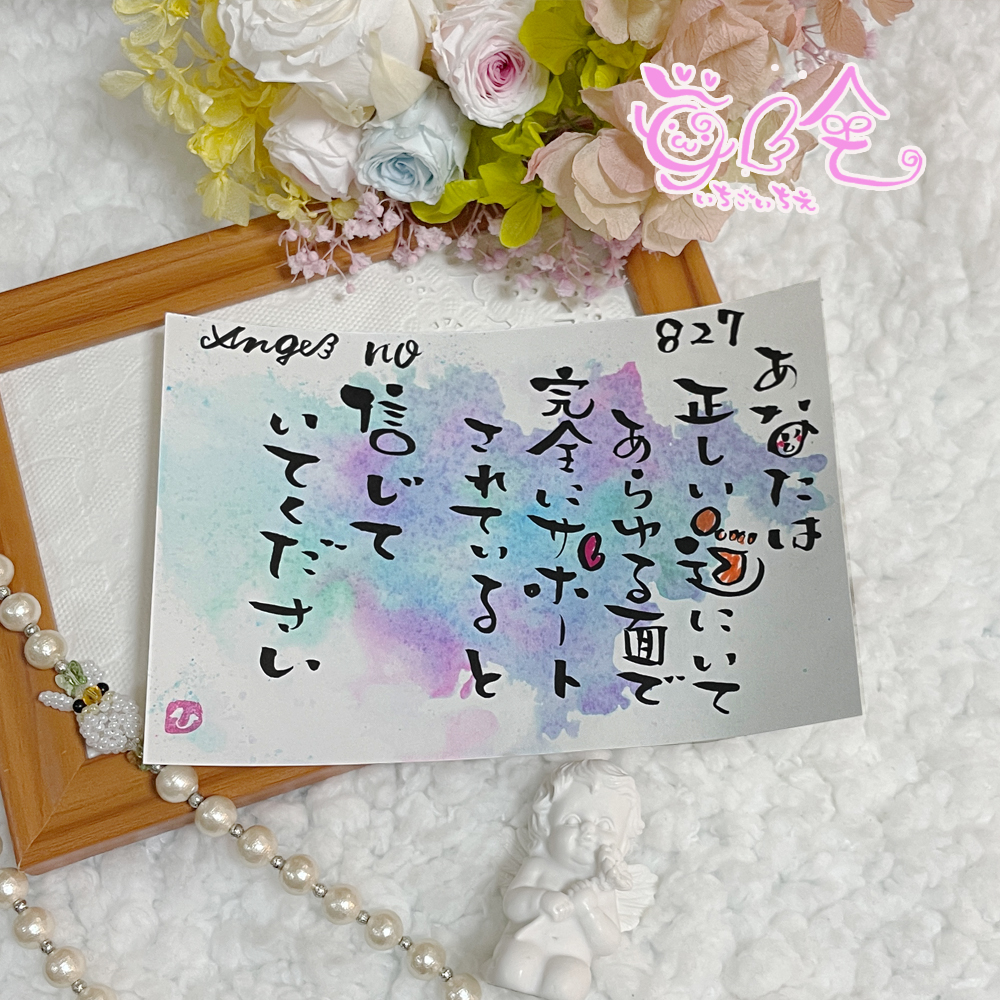 いちごいちえ
Angel no
827
あなたは
正しい道にいて
あらゆる面で
完全にサポート
されていると
信じて
いてください
ひ